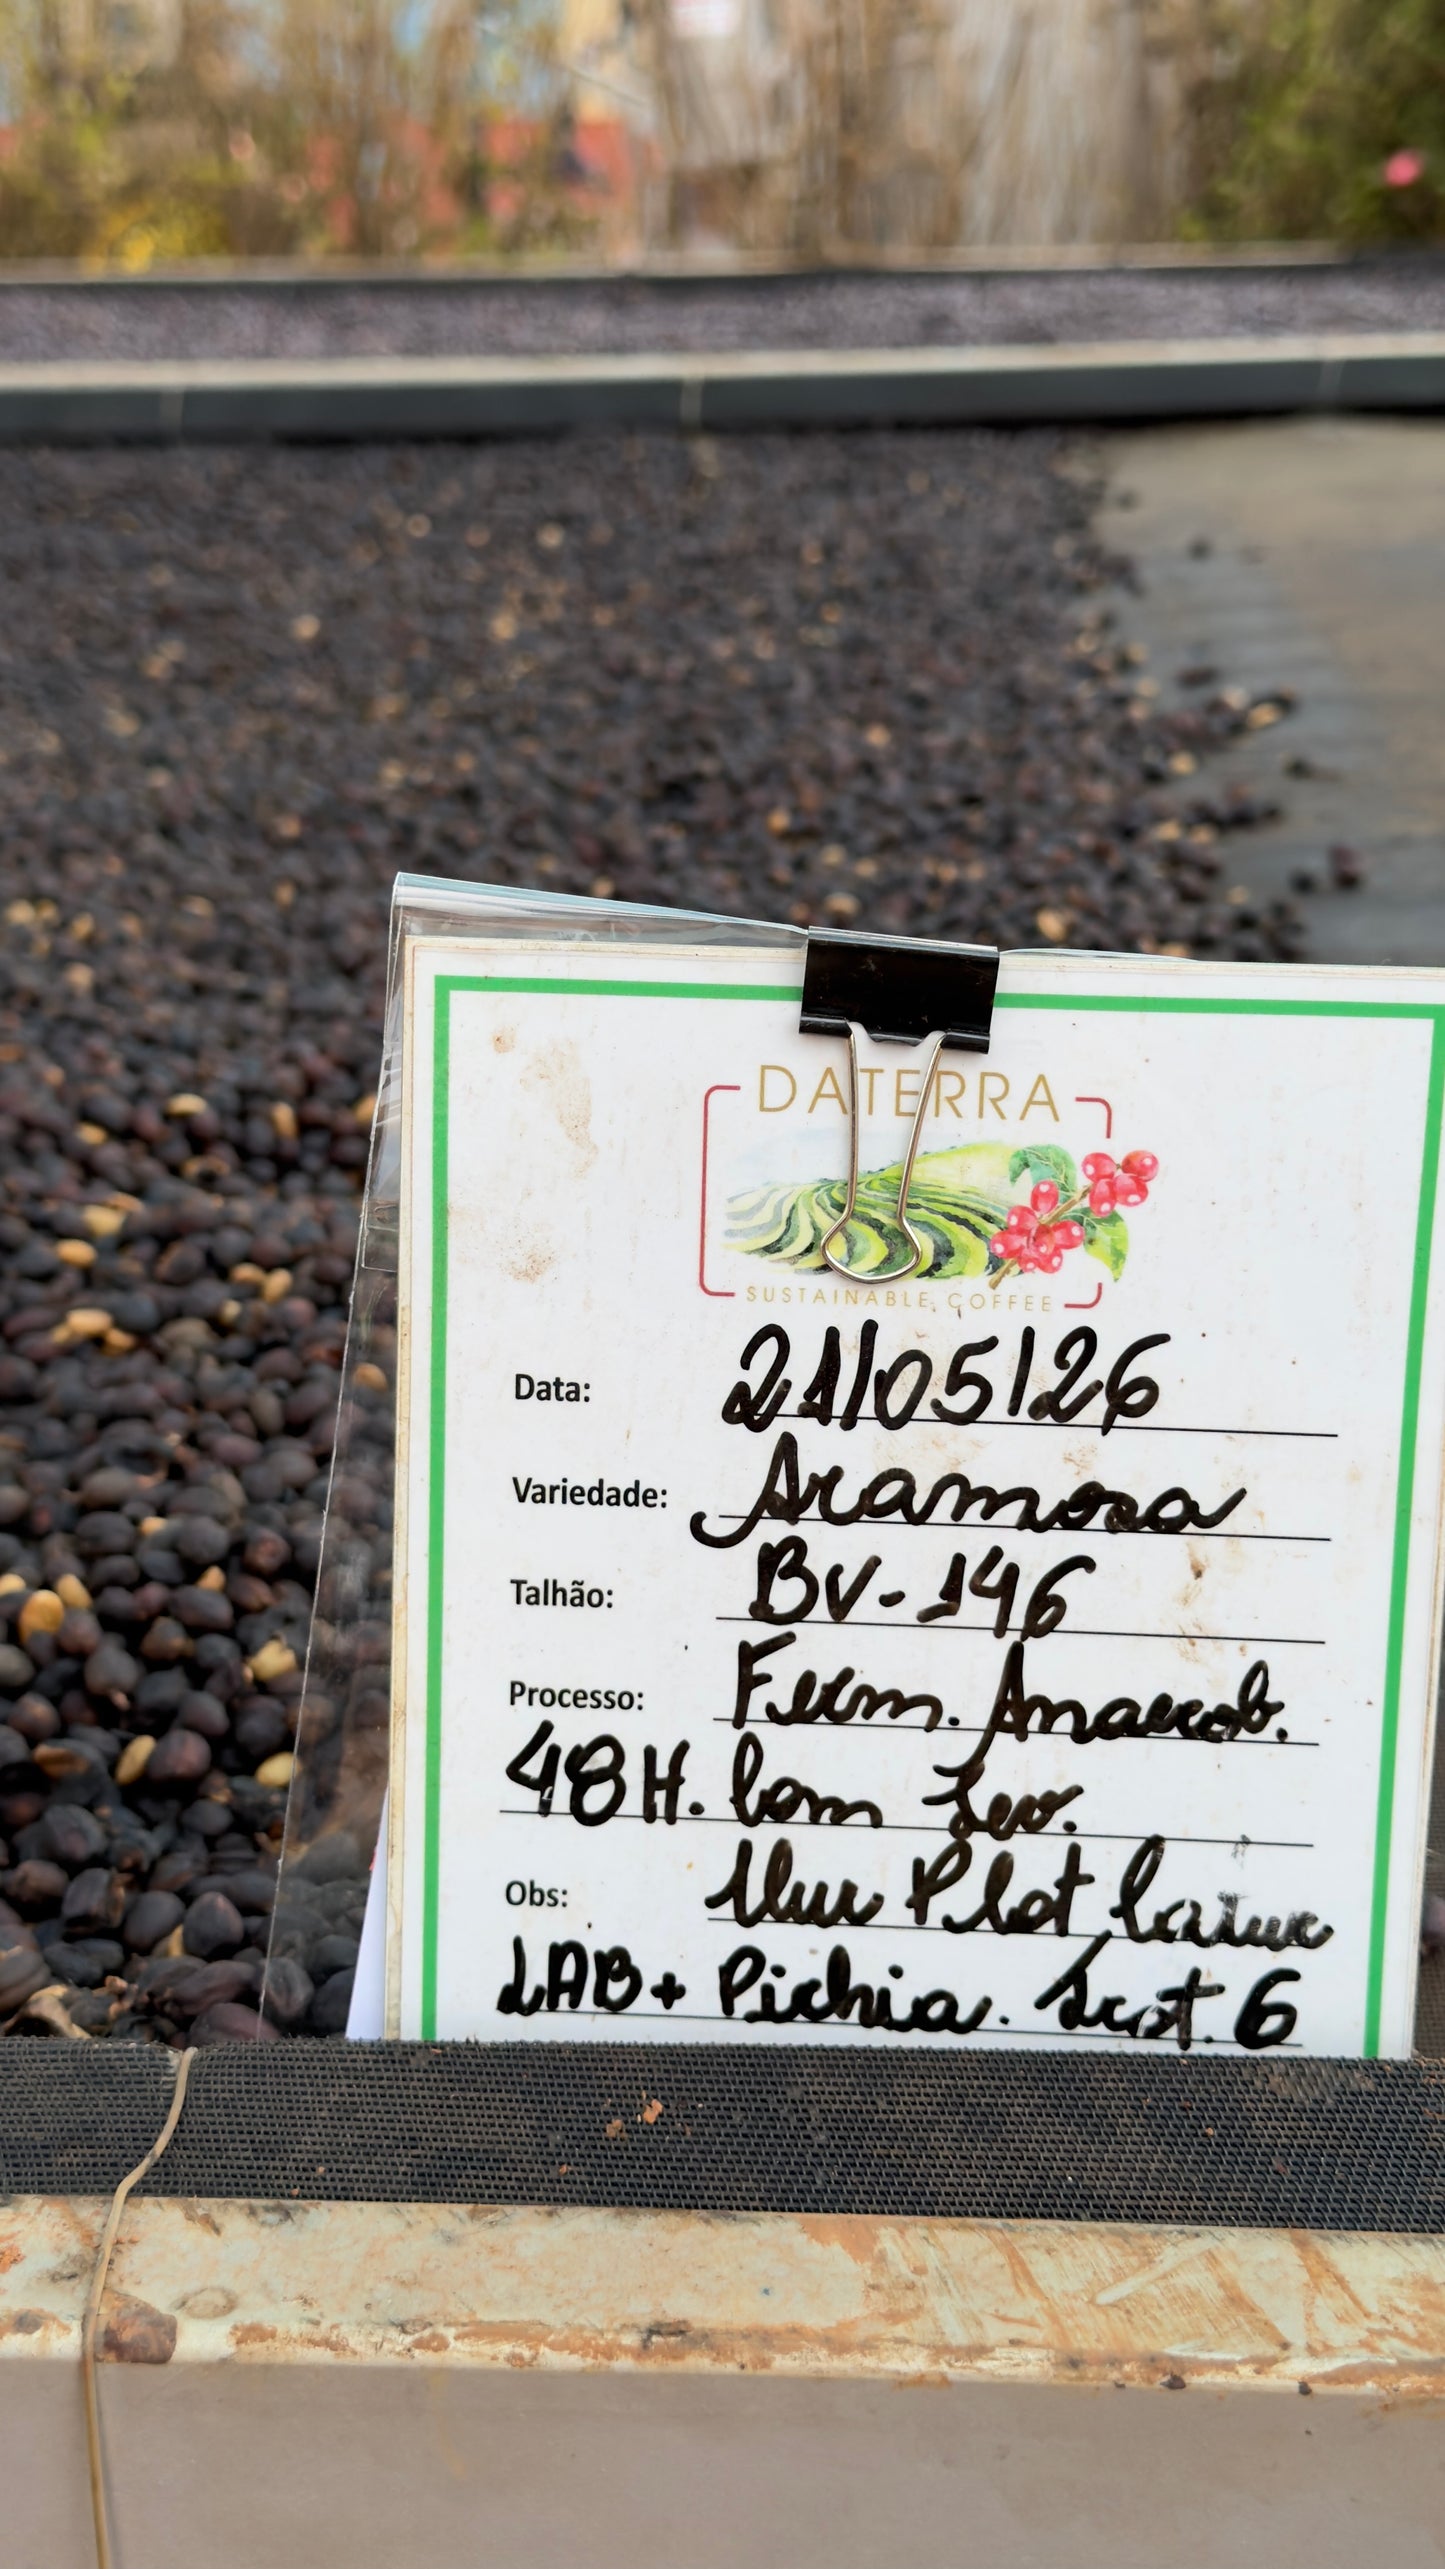 DATERRA
SUSTAINABLE COFFEE
Data: 21/05/26
Variedade: Aramosa
Talhão: BV-146
Processo: Ferm. Anaerob.
48H. Com Lev.
Obs: Plot
LAB + Pichia. 6